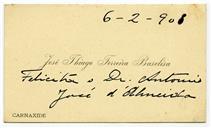 6-2-908
José Thiago Ferreira Baselisa
Felicita o Dr. Antonio
José d'Almeida
CARNAXIDE